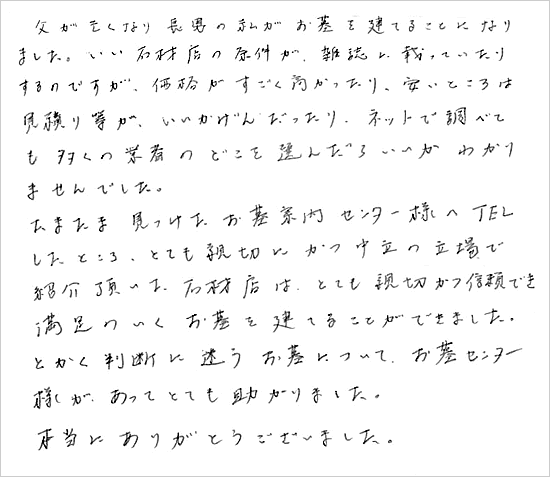 父が亡くなり長男の私がお墓を建てることになり
ました。いい石材店の条件が、雑誌に載っていたり
するのですが、価格がすごく高かったり、安いところは
見積り等が、いいかげんだったり、ネットで調べて
も多くの業者のどこを選んだらいいかわかり
ませんでした。
たまたま見つけたお墓案内センター様へTEL
したところ、とても親切にかつ中立の立場で
紹介頂いた石材店は、とても親切かつ信頼でき
満足のいくお墓を建てることができました。
とかく判断に迷うお墓について、お墓センター
様が、あってとても助かりました。
本当にありがとうございました。